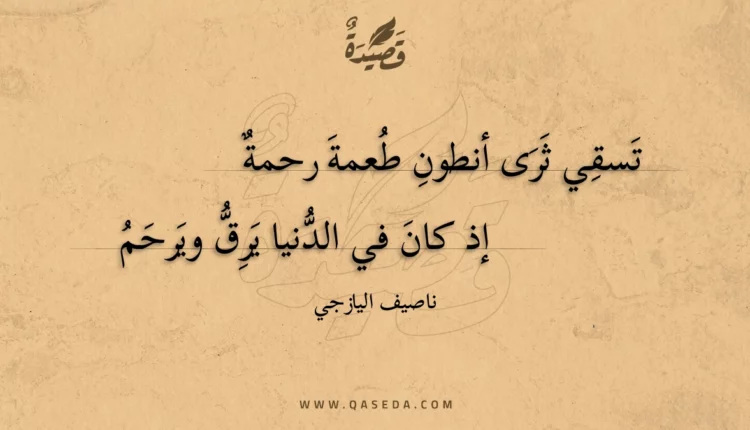 قَصِيْدَةٌ
تَسقِي ثَرَى أنطونِ طُعمةَ رحمةٌ
إذ كانَ في الدُّنيا يَرِقُّ ويَرحَمُ
ناصيف اليازجي
WWW.QASEDA.COM